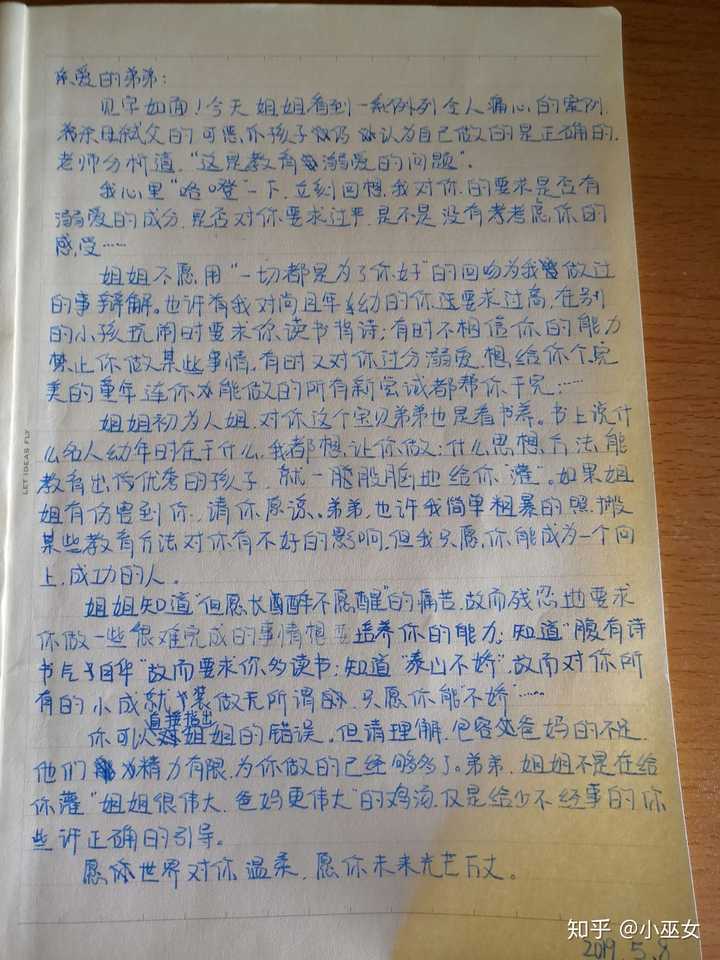 亲爱的弟弟：
见字如面！今天姐姐看到一系列令人痛心的案例，
弑父的可恶小孩子仍认为自己做的是正确的，
老师分析道，“这是教育溺爱的问题”。
我心里“咯噔”一下，立刻回想，我对你的要求是否有
溺爱的成分，是否对你要求过严，是不是没有考虑你的
感受……
姐姐不愿用“一切都是为了你好”的回吻为我做过
的事辩解。也许有我对尚且年幼的你还要求过高，在别
的小孩玩闹时要求你读书背诗；有时不相信你的能力
禁止你做某些事情，有时又对你过分溺爱，想给你个完
美的童年，连你能做的所有新尝试都帮你干完；……
姐姐初为人姐，对你这个宝贝弟弟也是看书养。书上说什
么名人幼年时在干什么，我都想让你做；什么思想方法能
教育出优秀的孩子，就一股脑地给你“灌”。如果姐
姐有伤害到你，请你原谅、弟弟，也许我简单粗暴的照搬
某些教育方法对你有不好的影响，但我只愿你能成为一个向
上，成功的人。
姐姐知道“但愿长醉不愿醒”的痛苦，故而残忍地要求
你做一些很难完成的事情想要培养你的能力；知道“腹有诗
书气自华”故而要求你多读书；知道“泰山不娇”，故而对你所
有的小成就装做无所谓的，只愿你能“不娇”……
你可以直接指出姐姐的错误。但请理解，包容爸妈的不足，
他们精力有限，为你做的已经够多了。弟弟，姐姐不是在给
你灌“姐姐很伟大，爸妈更伟大”的鸡汤，仅是给少不经事的你
些许正确的引导。
愿世界对你温柔，愿你未来光芒万丈。
2019.5.8
LET IDEAS FLY
知乎 @小巫女